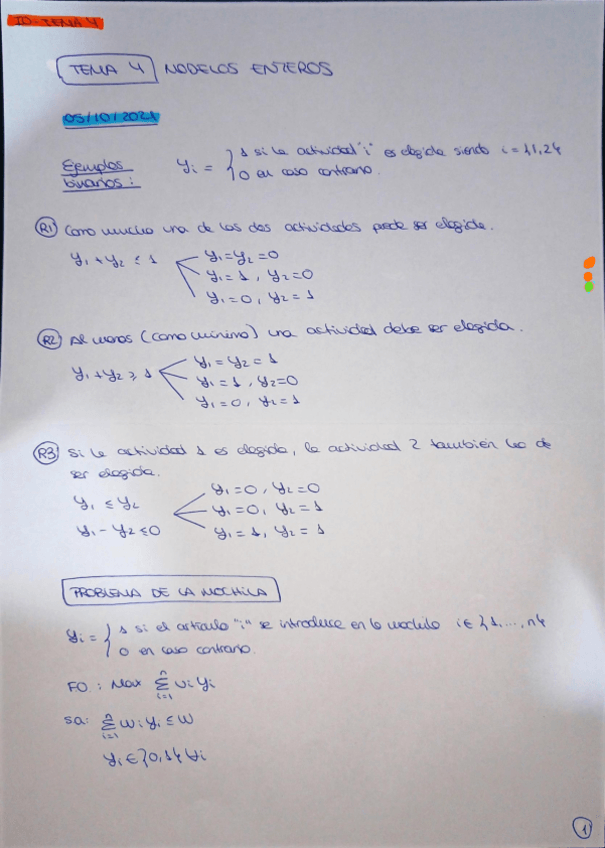 IO - TEMA 4
TEMA 4 MODELOS ENTEROS
05/10/2021
Ejemplos binarios: yi = { 1 si la actividad "i" es elegida siendo i = {1,2}
0 en caso contrario.
R1 Como mucho una de las dos actividades puede ser elegida.
y1 + y2 ≤ 1
y1 = y2 = 0
y1 = 1, y2 = 0
y1 = 0, y2 = 1
R2 Al menos (como mínimo) una actividad debe ser elegida.
y1 + y2 ≥ 1
y1 = y2 = 1
y1 = 1, y2 = 0
y1 = 0, y2 = 1
R3 Si la actividad 1 es elegida, la actividad 2 también ha de
ser elegida.
y1 ≤ y2
y1 - y2 ≤ 0
y1 = 0, y2 = 0
y1 = 0, y2 = 1
y1 = 1, y2 = 1
PROBLEMA DE LA MOCHILA
yi = { 1 si el artículo "i" se introduce en la mochila i ∈ {1, ..., n}
0 en caso contrario.
FO.: Max ∑ i=1 n vi yi
sa: ∑ i=1 n wi yi ≤ W
yi ∈ {0,1} ∀i
1